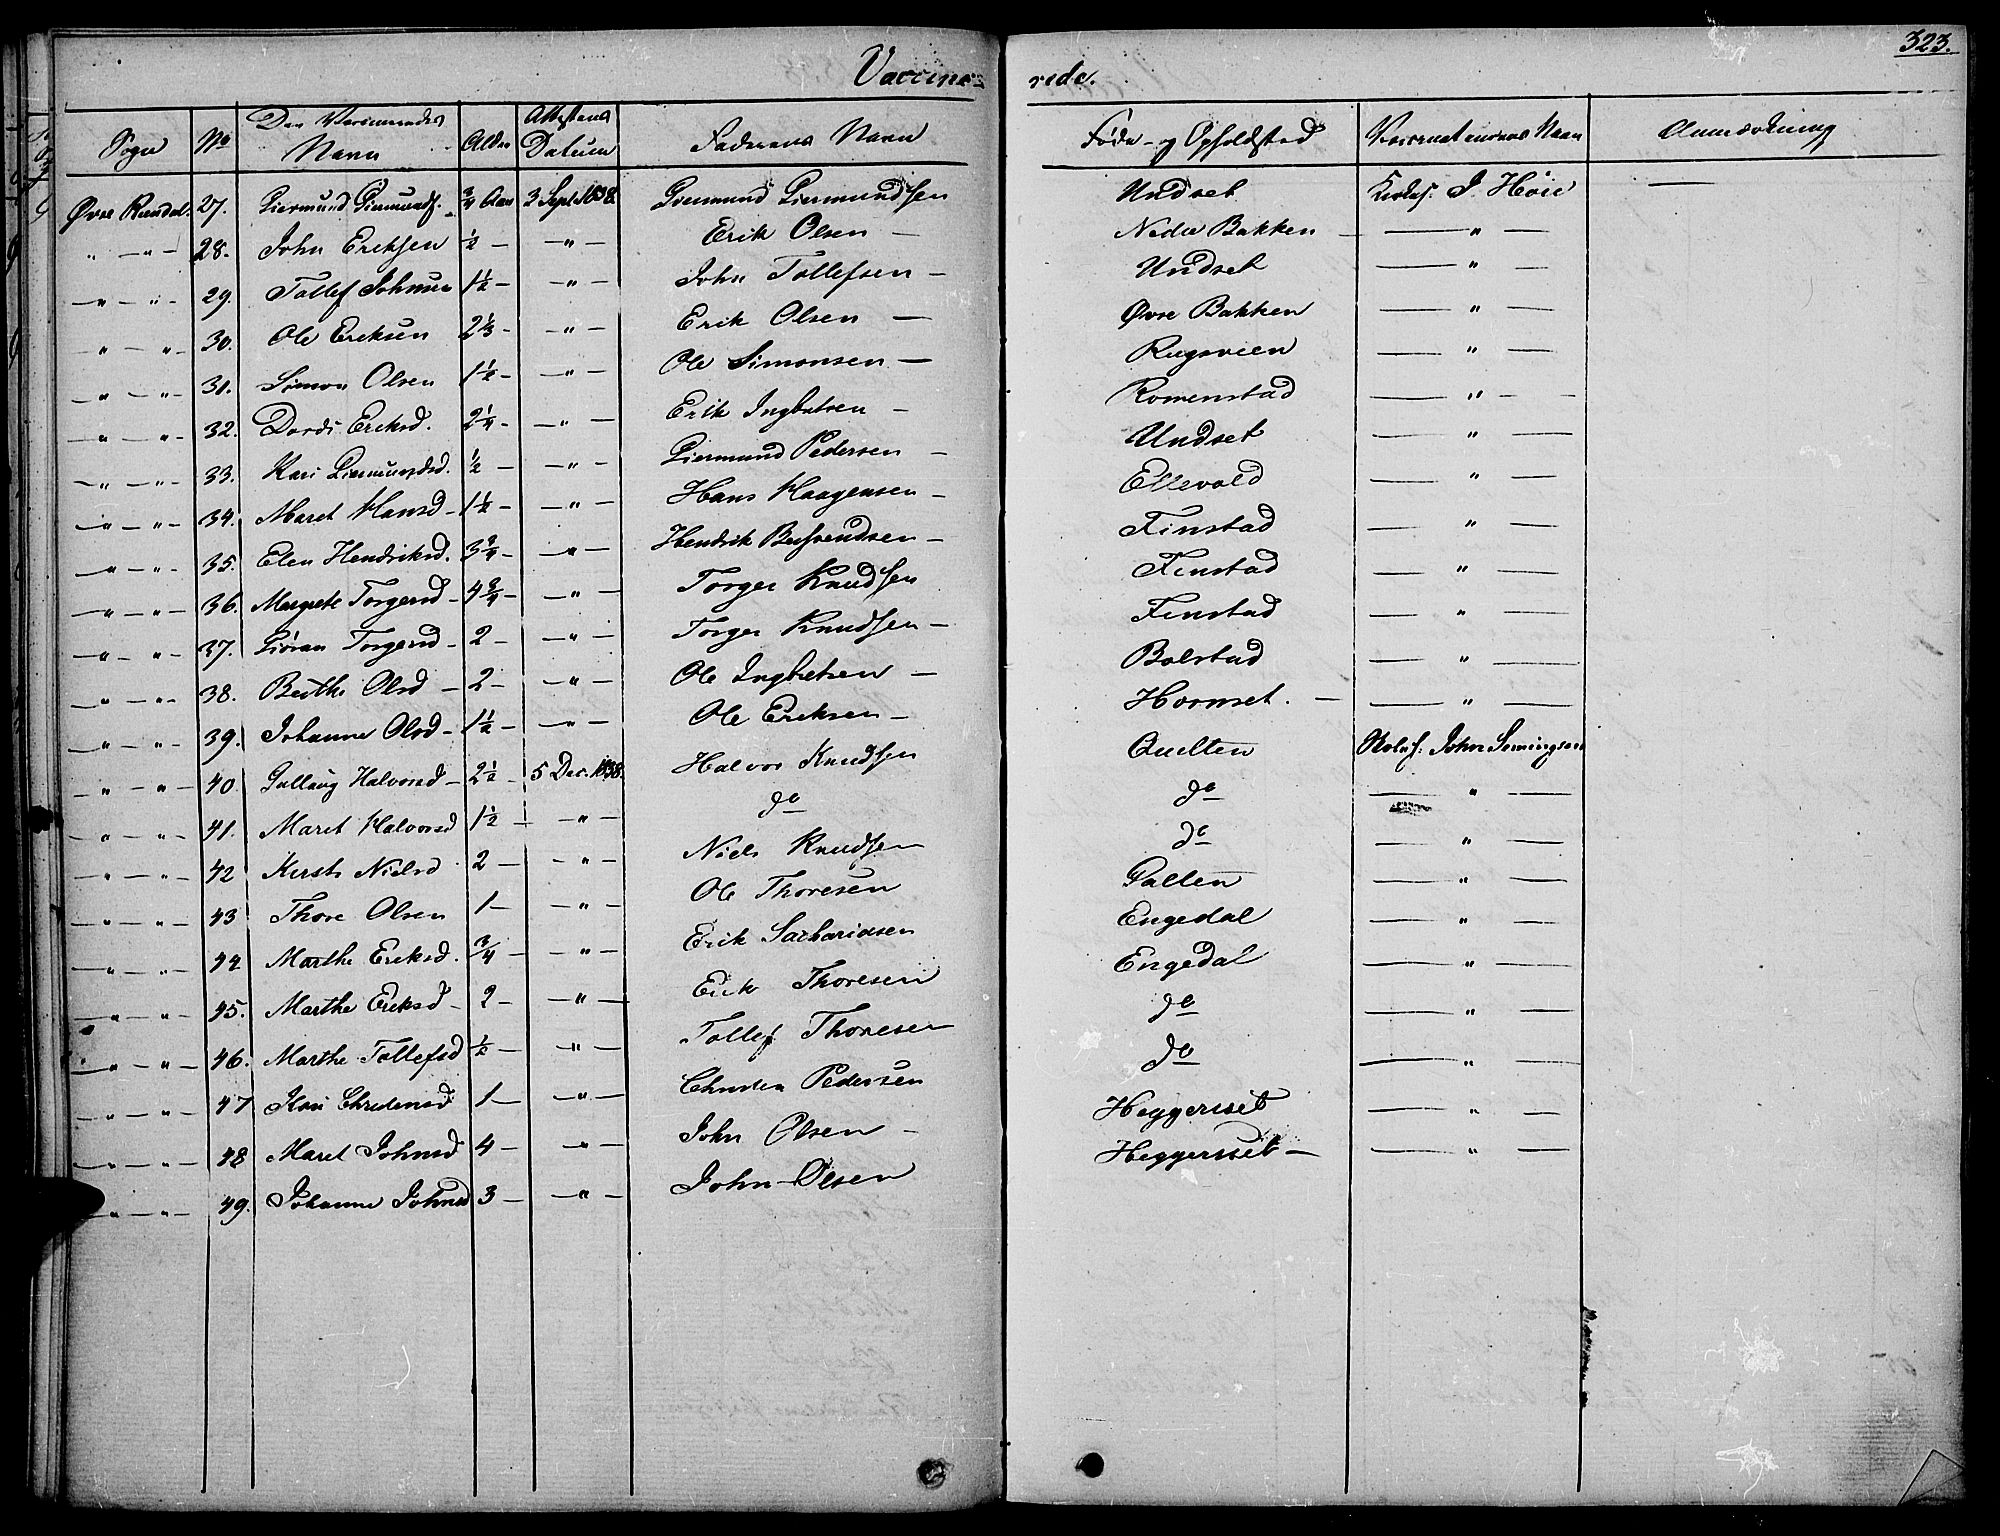 Vaccine=
rede.
323.
Sogn No Den Vaccineredes Navn Alder Attestens Datum Faderens Navn Føde- og Opholdsted Vaccinateurens Navn Anmærkning
Øvre Rendal. 27. Giermund Giermunds. 3/4 Aar 3 Sept. 1838. Giermund Giermundsen Undset J. Høie —
" — " — 28. John Eriksen 1/2 — — " — Erik Olsen — Nedre Bakken — — " —
" — " — 29. Tollef Johnsen 1 1/2 — — " — John Tollefsen — Undset — " —
" — " — 30. Ole Eriksen 2 1/3 — — " — Erik Olsen — Øvre Bakken — " —
— " — " — 31. Simon Olsen 1 1/2 — — " — Ole Simonsen — Rugsveen — " —
— " — " — 32. Dordi Eriksd. 2 1/4 — — " — Erik Ingbretsen — Romenstad — " —
— " — " — 33. Kari Giermundsd. 1/2 — — " — Giermund Pedersen — Undset — " —
— " — " — 34. Maret Hansd — 1 1/2 — — " — Hans Haagensen — Ellevold — " —
— " — " — 35. Elen Hendriksd. 3 3/4 — — " — Hendrik — Finstad — " —
— " — " — 36. Margrete Torgersd — 4 3/4 — — " — Torger Knudsen Finstad — " —
— " — " — 37. Giøran Torgersd — 2 — — " — Torger Knudsen — Finstad — " —
— " — " — 38. Berthe Olsd — 2 — — " — Ole Ingbretsen — Bolstad — " —
— " — " — 39. Johanne Olsd — 1 1/2 — — " — Ole Eriksen — Hornset. — — " —
— " — " — 40. Gullaug Halvorsd — 2 1/2 — 5 Dec. 1838. Halvor Knudsen Qvelten John Semingsen
— " — " — 41. Maret Halvorsd 1 1/2 — — " — do do — " —
— " — " — 42 Kersti Nielsd 2 — — " — Niels Knudsen do — " —
— " — " — 43 Thore Olsen 1 — — " — Ole Thoresen Galten — " —
— " — " — 44 Marthe Eriksd. 3/4 — — " — Erik Sachariasen Engedal — " —
— " — " — 45. Marthe Eriksd — 2 — — " — Erik Thoresen Engedal — " —
— " — " — 46. Marthe Tollefsd 1/2 — — " — Tollef Thoresen do — " —
— " — " — 47 Kari Christensd 1 — — " — Christen Pedersen do — " —
— " — " — 48 Maret Johnsd 4 — — " — John Olsen — Heggerisset — " —
— " — " — 49. Johanne Johnsd 3 — — " — John Olsen Heggerisset — — " —